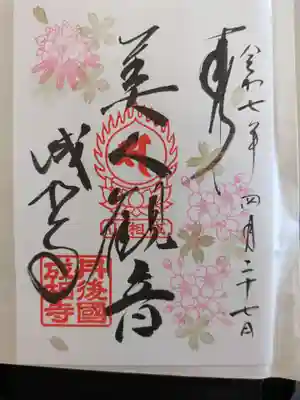 令和七年 四月二十七日
奉
美人觀音
成相寺
丹後國
成相寺